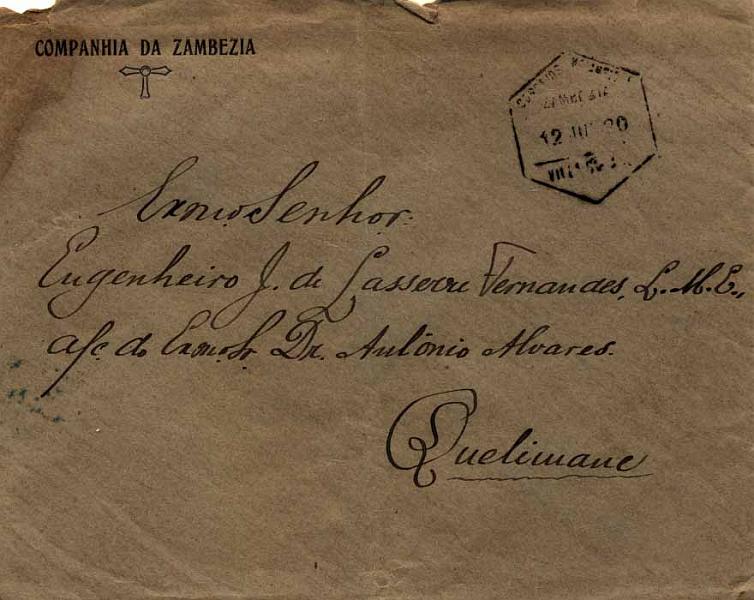 COMPANHIA DA ZAMBEZIA
ZAMBEZIA
12 JU 20
Exmo Senhor.
Engenheiro J. de Lasserre Fernandes, L.M.E.,
a/c do Exmo Sr. Dr. António Alvares.
Quelimane